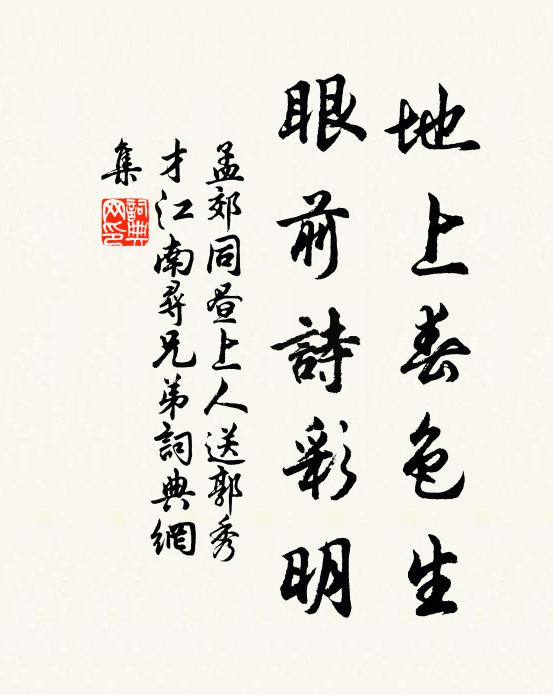 地上春色生
眼前詩彩明
孟郊同昼上人送郭秀
才江南尋兄弟詞典網
集
詞典
网印